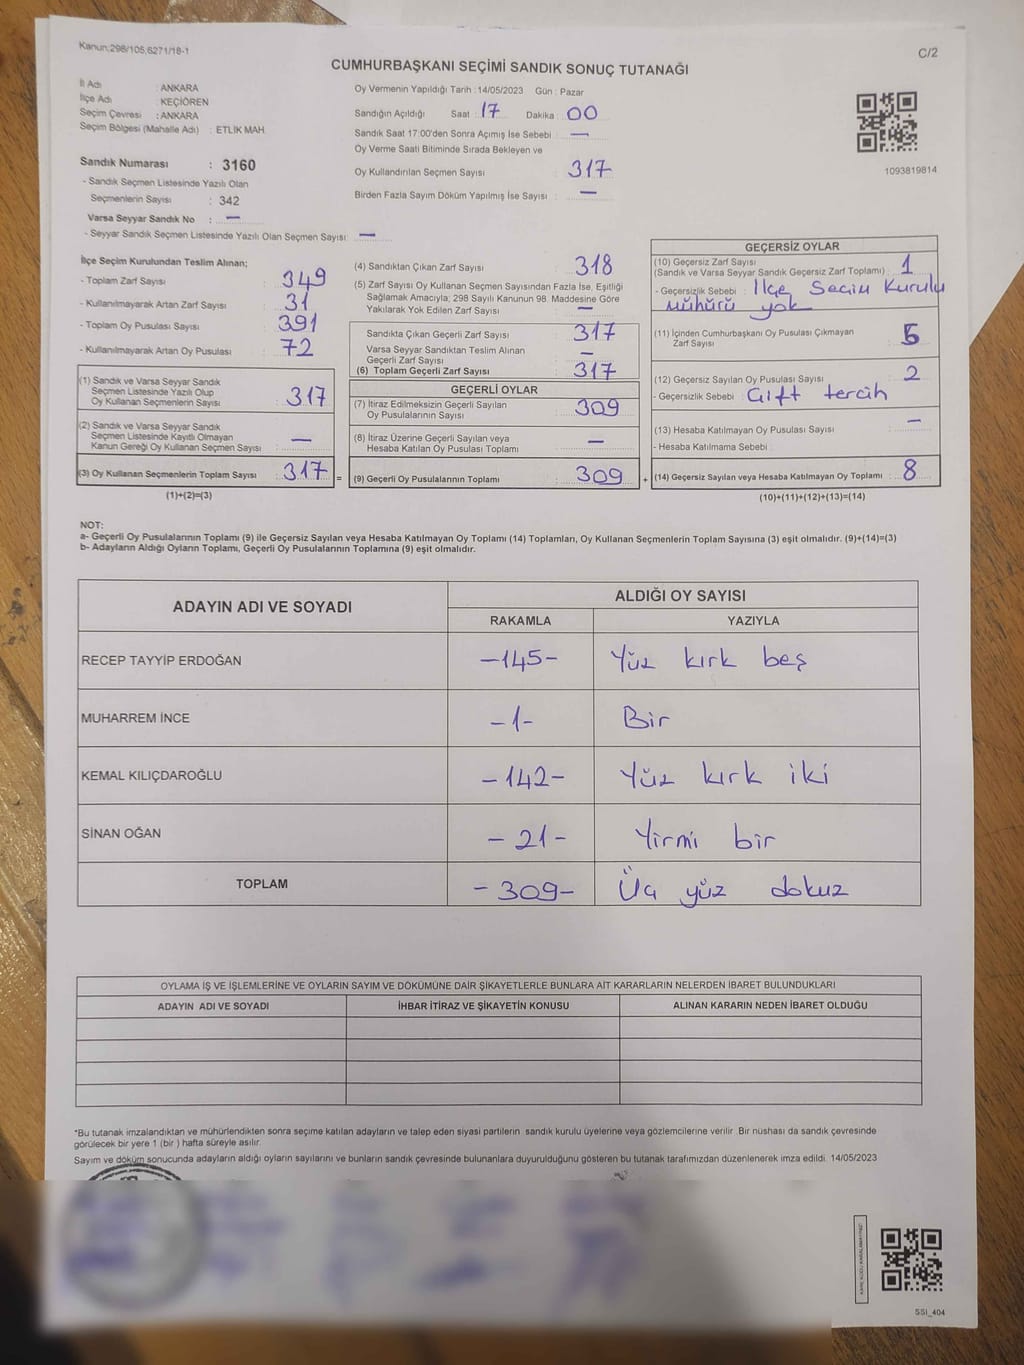 Kanun;298/105,6271/18-1
C/2
CUMHURBAŞKANI SEÇİMİ SANDIK SONUÇ TUTANAĞI
İl Adı : ANKARA
İlçe Adı : KEÇİÖREN
Seçim Çevresi : ANKARA
Seçim Bölgesi (Mahalle Adı) : ETLİK MAH.
Sandık Numarası : 3160
- Sandık Seçmen Listesinde Yazılı Olan
Seçmenlerin Sayısı : 342
Varsa Seyyar Sandık No : —
- Seyyar Sandık Seçmen Listesinde Yazılı Olan Seçmen Sayısı: —
Oy Vermenin Yapıldığı Tarih : 14/05/2023 Gün : Pazar
Sandığın Açıldığı Saat : 17 Dakika : 00
Sandık Saat 17:00'den Sonra Açımış İse Sebebi : —
Oy Verme Saati Bitiminde Sırada Bekleyen ve
Oy Kullandırılan Seçmen Sayısı : 317
Birden Fazla Sayım Döküm Yapılmış İse Sayısı : —
1093819814
İlçe Seçim Kurulundan Teslim Alınan;
- Toplam Zarf Sayısı : 349
- Kullanılmayarak Artan Zarf Sayısı : 31
- Toplam Oy Pusulası Sayısı : 391
- Kullanılmayarak Artan Oy Pusulası : 72
(1) Sandık ve Varsa Seyyar Sandık
Seçmen Listesinde Yazılı Olup
Oy Kullanan Seçmenlerin Sayısı : 317
(2) Sandık ve Varsa Seyyar Sandık
Seçmen Listesinde Kayıtlı Olmayan
Kanun Gereği Oy Kullanan Seçmen Sayısı : —
(3) Oy Kullanan Seçmenlerin Toplam Sayısı : 317 =
(1)+(2)=(3)
(4) Sandıktan Çıkan Zarf Sayısı : 318
(5) Zarf Sayısı Oy Kullanan Seçmen Sayısından Fazla İse, Eşitliği
Sağlamak Amacıyla; 298 Sayılı Kanunun 98. Maddesine Göre
Yakılarak Yok Edilen Zarf Sayısı : —
Sandıkta Çıkan Geçerli Zarf Sayısı : 317
Varsa Seyyar Sandıktan Teslim Alınan
Geçerli Zarf Sayısı : —
(6) Toplam Geçerli Zarf Sayısı : 317
GEÇERLİ OYLAR
(7) İtiraz Edilmeksizin Geçerli Sayılan
Oy Pusulalarının Sayısı : 309
(8) İtiraz Üzerine Geçerli Sayılan veya
Hesaba Katılan Oy Pusulası Toplamı : —
(9) Geçerli Oy Pusulalarının Toplamı : 309 +
GEÇERSİZ OYLAR
(10) Geçersiz Zarf Sayısı
(Sandık ve Varsa Seyyar Sandık Geçersiz Zarf Toplamı) : 1
- Geçersizlik Sebebi : İlçe Seçim Kurulu
mühürü yok
(11) İçinden Cumhurbaşkanı Oy Pusulası Çıkmayan
Zarf Sayısı : 5
(12) Geçersiz Sayılan Oy Pusulası Sayısı : 2
- Geçersizlik Sebebi : Çift tercih
(13) Hesaba Katılmayan Oy Pusulası Sayısı : —
- Hesaba Katılmama Sebebi :
(14) Geçersiz Sayılan veya Hesaba Katılmayan Oy Toplamı : 8
(10)+(11)+(12)+(13)=(14)
NOT:
a- Geçerli Oy Pusulalarının Toplamı (9) ile Geçersiz Sayılan veya Hesaba Katılmayan Oy Toplamı (14) Toplamları, Oy Kullanan Seçmenlerin Toplam Sayısına (3) eşit olmalıdır. (9)+(14)=(3)
b- Adayların Aldığı Oyların Toplamı, Geçerli Oy Pusulalarının Toplamına (9) eşit olmalıdır.
ADAYIN ADI VE SOYADI
ALDIĞI OY SAYISI
RAKAMLA YAZIYLA
RECEP TAYYİP ERDOĞAN -145- Yüz kırk beş
MUHARREM İNCE -1- Bir
KEMAL KILIÇDAROĞLU -142- Yüz kırk iki
SİNAN OĞAN -21- Yirmi bir
TOPLAM -309- Üç yüz dokuz
OYLAMA İŞ VE İŞLEMLERİNE VE OYLARIN SAYIM VE DÖKÜMÜNE DAİR ŞİKAYETLERLE BUNLARA AİT KARARLARIN NELERDEN İBARET BULUNDUKLARI
ADAYIN ADI VE SOYADI İHBAR İTİRAZ VE ŞİKAYETİN KONUSU ALINAN KARARIN NEDEN İBARET OLDUĞU
*Bu tutanak imzalandıktan ve mühürlendikten sonra seçime katılan adayların ve talep eden siyasi partilerin sandık kurulu üyelerine veya gözlemcilerine verilir. Bir nüshası da sandık çevresinde
görülecek bir yere 1 (bir ) hafta süreyle asılır.
Sayım ve döküm sonucunda adayların aldığı oyların sayılarını ve bunların sandık çevresinde bulunanlara duyurulduğunu gösteren bu tutanak tarafımızdan düzenlenerek imza edildi. 14/05/2023
SSI_404